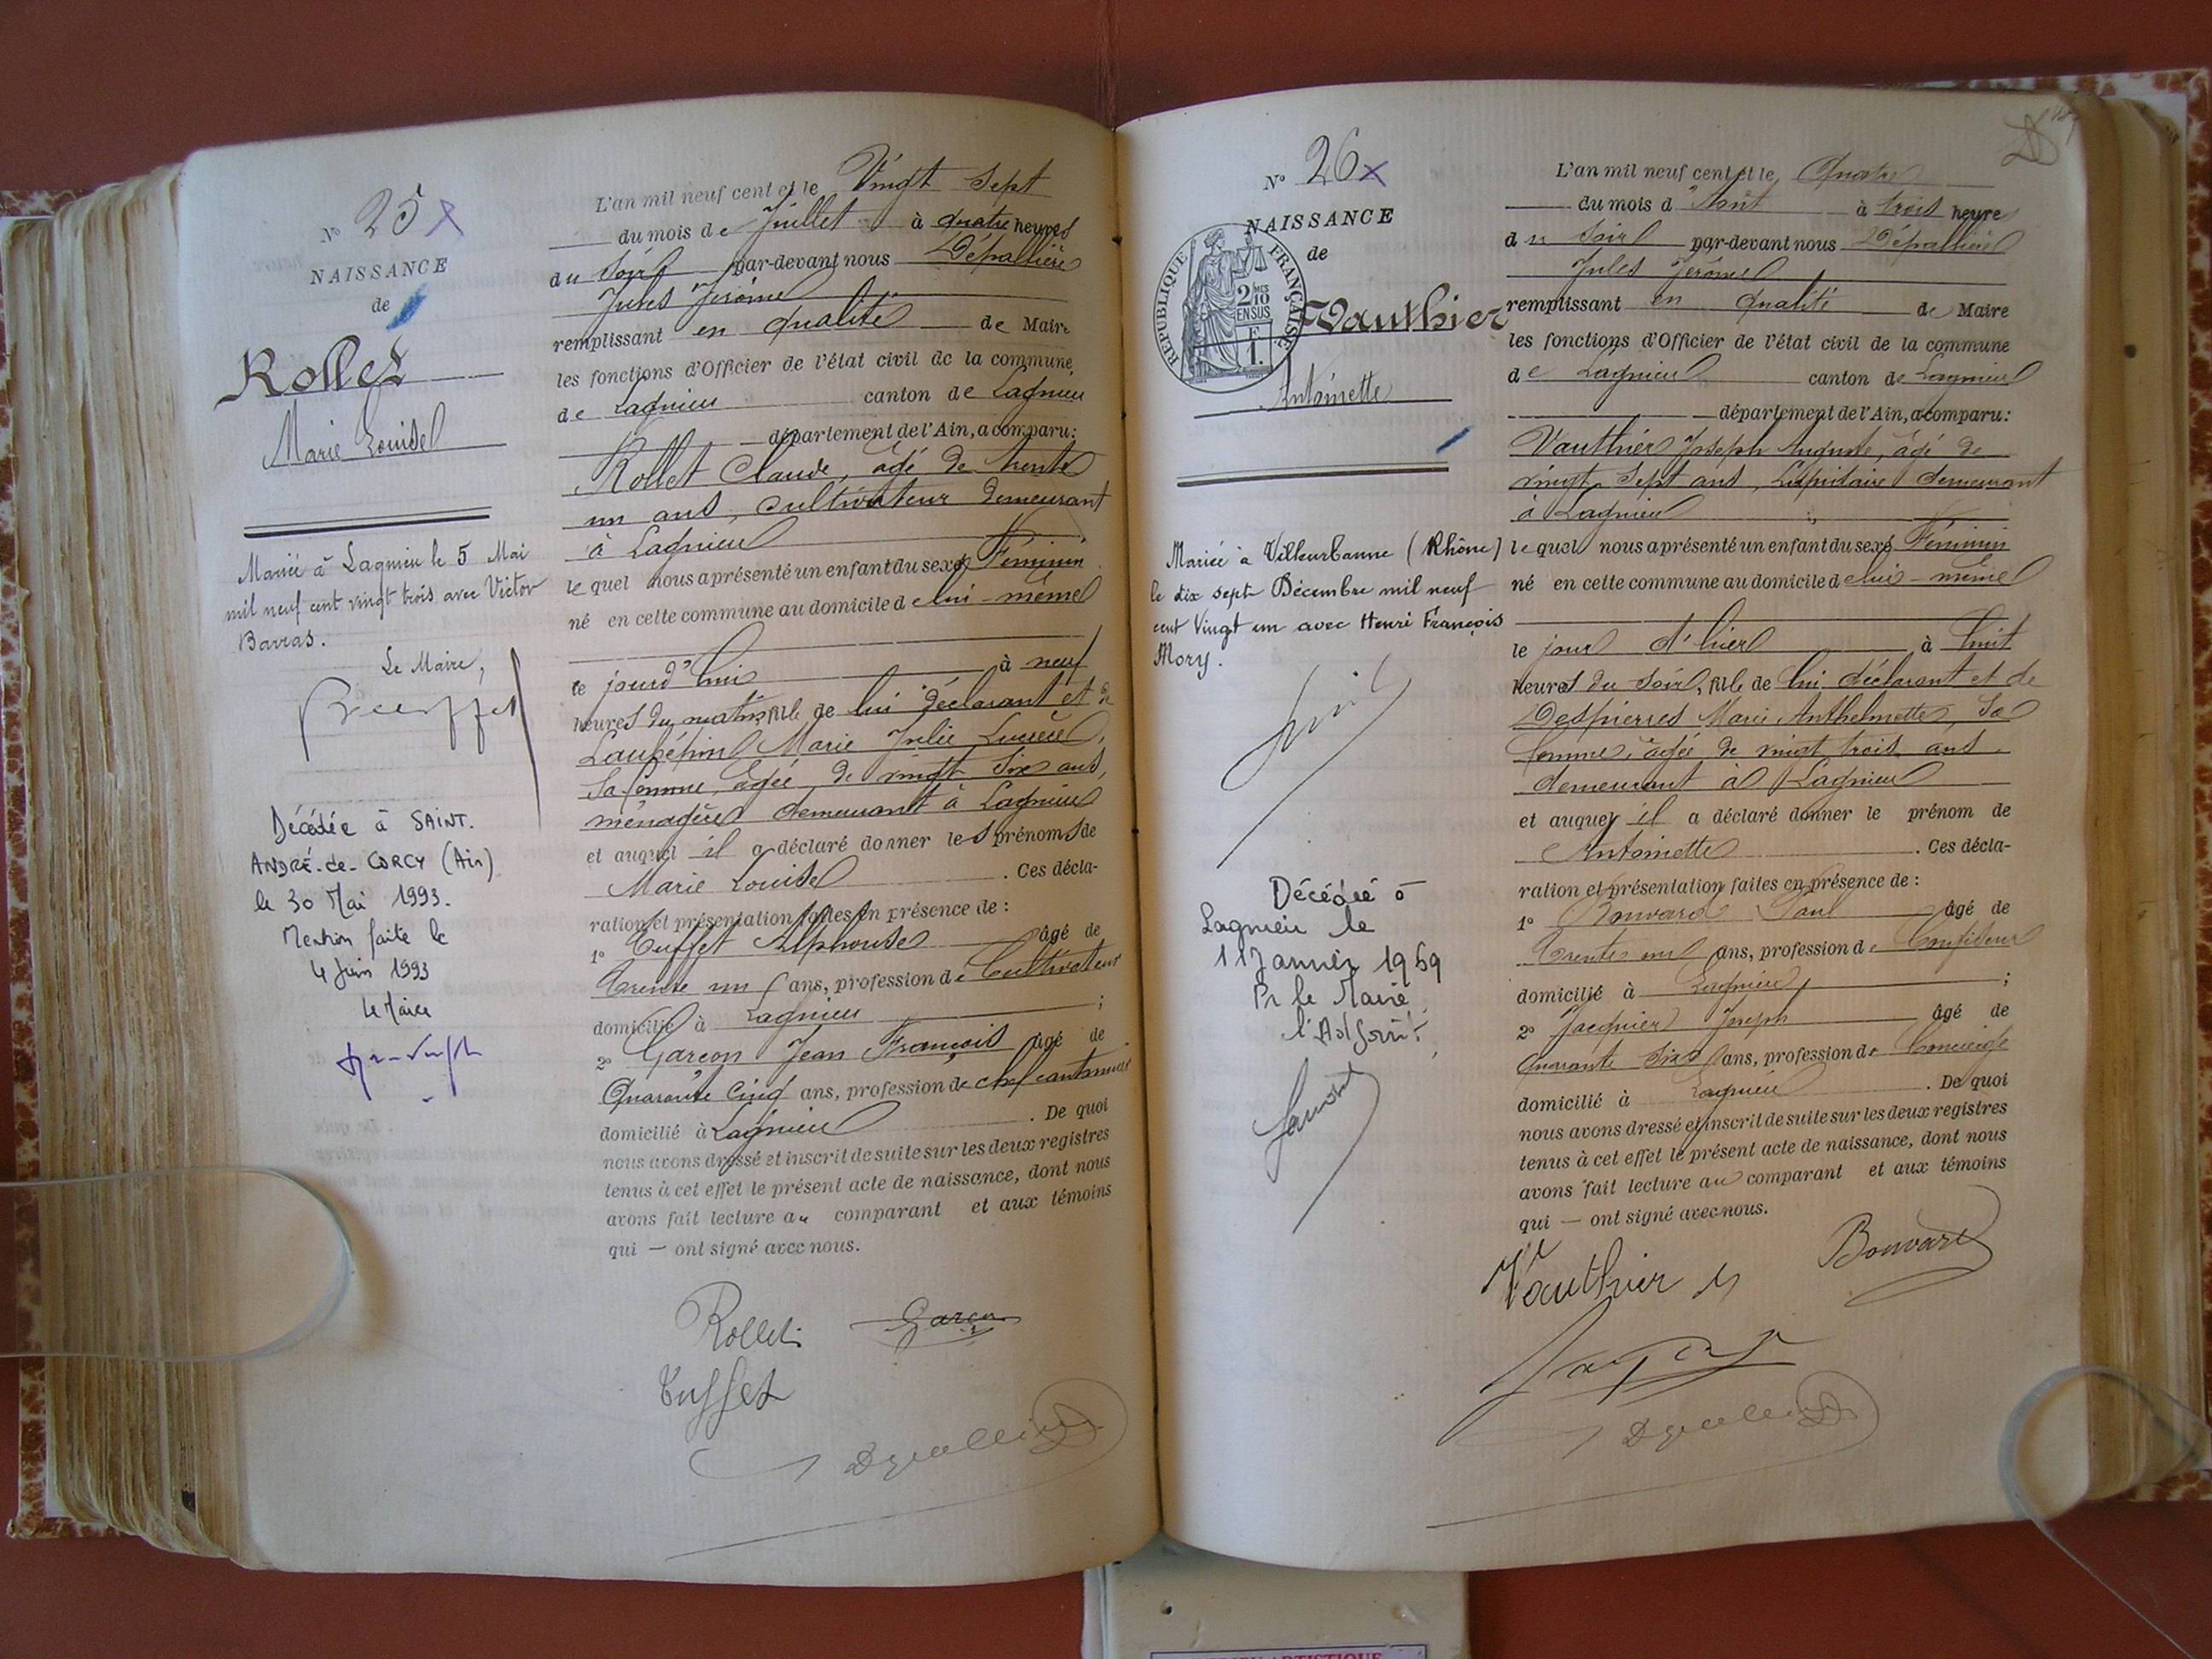 N° 25 X
NAISSANCE
de
Rollet
Marie Louise
Mariée à Lagnieu le 5 Mai
mil neuf cent vingt trois avec Victor
Barras.
Le Maire,
Décédée à SAINT.
ANDRÉ-de-CORCY (Ain)
le 30 Mai 1993.
Mention faite le
4 Juin 1993
Le Maire
L'an mil neuf cent et le Vingt Sept
du mois de Juillet à quatre heures
du Soir par-devant nous Dépallière
Jules Jérôme
remplissant en qualité de Maire
les fonctions d'Officier de l'état civil de la commune
de Lagnieu canton de Lagnieu
département de l'Ain, a comparu:
Rollet Claude, âgé de trente
un ans, cultivateur demeurant
à Lagnieu
le quel nous a présenté un enfant du sexe Féminin
né en cette commune au domicile de lui-même
le jourd'hui à neuf
heures du matin, fille de lui déclarant et de
Laubépin Marie Julie
Sa femme, âgée de vingt six ans,
ménagère demeurant à Lagnieu
et auquel il a déclaré donner les prénoms de
Marie Louise . Ces décla-
ration et présentation faites en présence de :
1° Tuffet Alphonse âgé de
Trente un ans, profession de Cultivateur
domicilié à Lagnieu ;
2° Garçon Jean François âgé de
Quarante Cinq ans, profession de chef cantonnier
domicilié à Lagnieu . De quoi
nous avons dressé et inscrit de suite sur les deux registres
tenus à cet effet le présent acte de naissance, dont nous
avons fait lecture au comparant et aux témoins
qui — ont signé avec nous.
Rollet Garçon
Tuffet
N° 26 X
NAISSANCE
de
REPUBLIQUE FRANÇAISE
2 MES
10
EN SUS
F
1.
Vauthier
Antoinette
Mariée à Villeurbanne (Rhône)
le dix sept Décembre mil neuf
cent Vingt un avec Henri François
Mory.
Décédée à
Lagnieu le
11 Janvier 1969
Pr le Maire
l'Adjoint
L'an mil neuf cent et le Quatre
du mois d'Août à trois heures
du Soir par-devant nous Dépallière
Jules Jérôme
remplissant en qualité de Maire
les fonctions d'Officier de l'état civil de la commune
de Lagnieu canton de Lagnieu
département de l'Ain, a comparu:
Vauthier Joseph Auguste, âgé de
vingt Sept ans, demeurant
à Lagnieu
le quel nous a présenté un enfant du sexe Féminin
né en cette commune au domicile de lui-même
le jour d'hier à huit
heures du Soir, fille de lui déclarant et de
Despierres Marie Anthelmette, Sa
femme, âgée de vingt trois ans
demeurant à Lagnieu
et auquel il a déclaré donner le prénom de
Antoinette . Ces décla-
ration et présentation faites en présence de :
1° Bouvard Paul âgé de
Trente un ans, profession de Confiseur
domicilié à Lagnieu ;
2° Jacquier Joseph âgé de
Quarante Six ans, profession de Concierge
domicilié à Lagnieu . De quoi
nous avons dressé et inscrit de suite sur les deux registres
tenus à cet effet le présent acte de naissance, dont nous
avons fait lecture au comparant et aux témoins
qui — ont signé avec nous.
Vauthier Bouvard